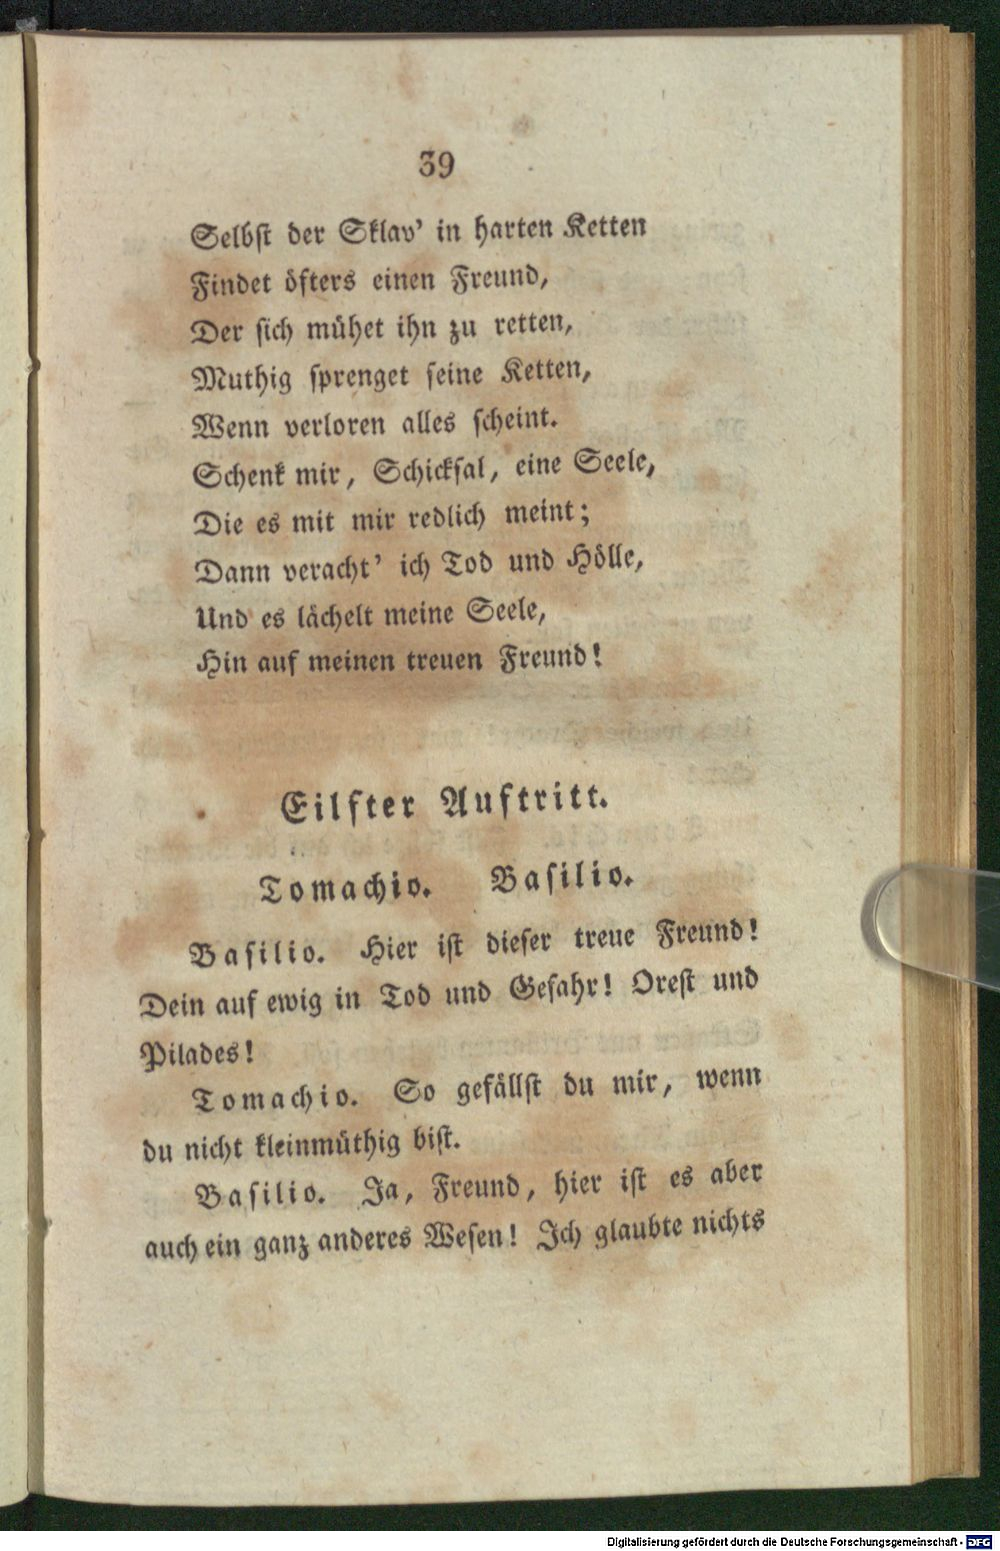 39
Selbst der Sklav' in harten Ketten
Findet öfters einen Freund,
Der sich mühet ihn zu retten,
Muthig sprenget seine Ketten,
Wenn verloren alles scheint.
Schenk mir, Schicksal, eine Seele,
Die es mit mir redlich meint;
Dann veracht' ich Tod und Hölle,
Und es lächelt meine Seele,
Hin auf meinen treuen Freund!
Eilfter Auftritt.
Tomachio. Basilio.
Basilio. Hier ist dieser treue Freund!
Dein auf ewig in Tod und Gefahr! Orest und
Pilades!
Tomachio. So gefällst du mir, wenn
du nicht kleinmüthig bist.
Basilio. Ja, Freund, hier ist es aber
auch ein ganz anderes Wesen! Ich glaubte nichts
Digitalisierung gefördert durch die Deutsche Forschungsgemeinschaft - DFG